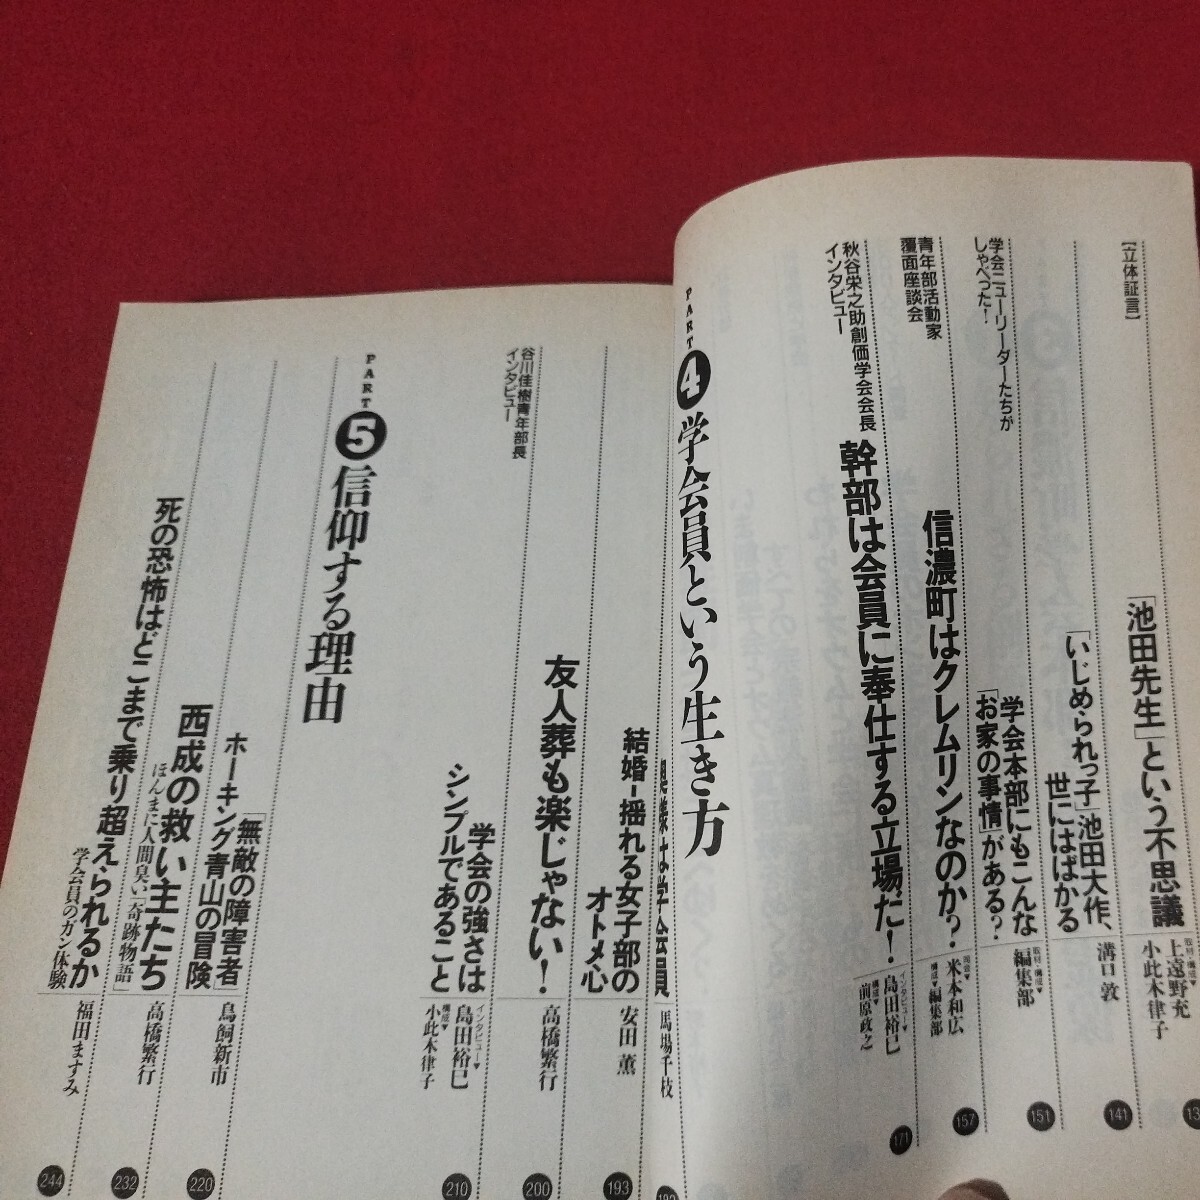 【立体証言】
「池田先生」という不思議
取材・構成▼
上遠野充
小此木律子
「いじめられっ子」池田大作、
世にはばかる
溝口敦
141
学会ニューリーダーたちが
しゃべった！
学会本部にもこんな
「お家の事情」がある？
取材・構成▼
編集部
151
青年部活動家
覆面座談会
信濃町はクレムリンなのか？
米本和広
構成▼
編集部
157
秋谷栄之助創価学会会長
インタビュー
幹部は会員に奉仕する立場だ！
インタビュー▼
島田裕巳
構成▼
前原政之
171
PART 4 学会員という生き方
は学会員
馬場千枝
結婚-揺れる女子部の
オトメ心
安田薫
193
友人葬も楽じゃない！
高橋繁行
200
谷川佳樹青年部長
インタビュー
学会の強さは
シンプルであること
インタビュー▼
島田裕巳
構成▼
小此木律子
210
PART 5 信仰する理由
「無敵の障害者」
ホーキング青山の冒険
鳥飼新市
220
西成の救い主たち
ほんまに人間臭い「奇跡物語」
高橋繁行
232
死の恐怖はどこまで乗り超えられるか
学会員のガン体験
福田ますみ
244